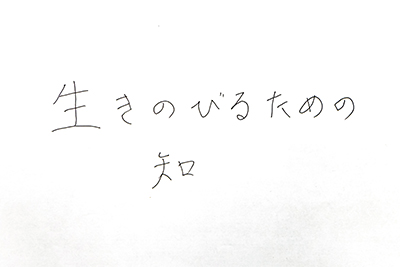 生きのびるための
知